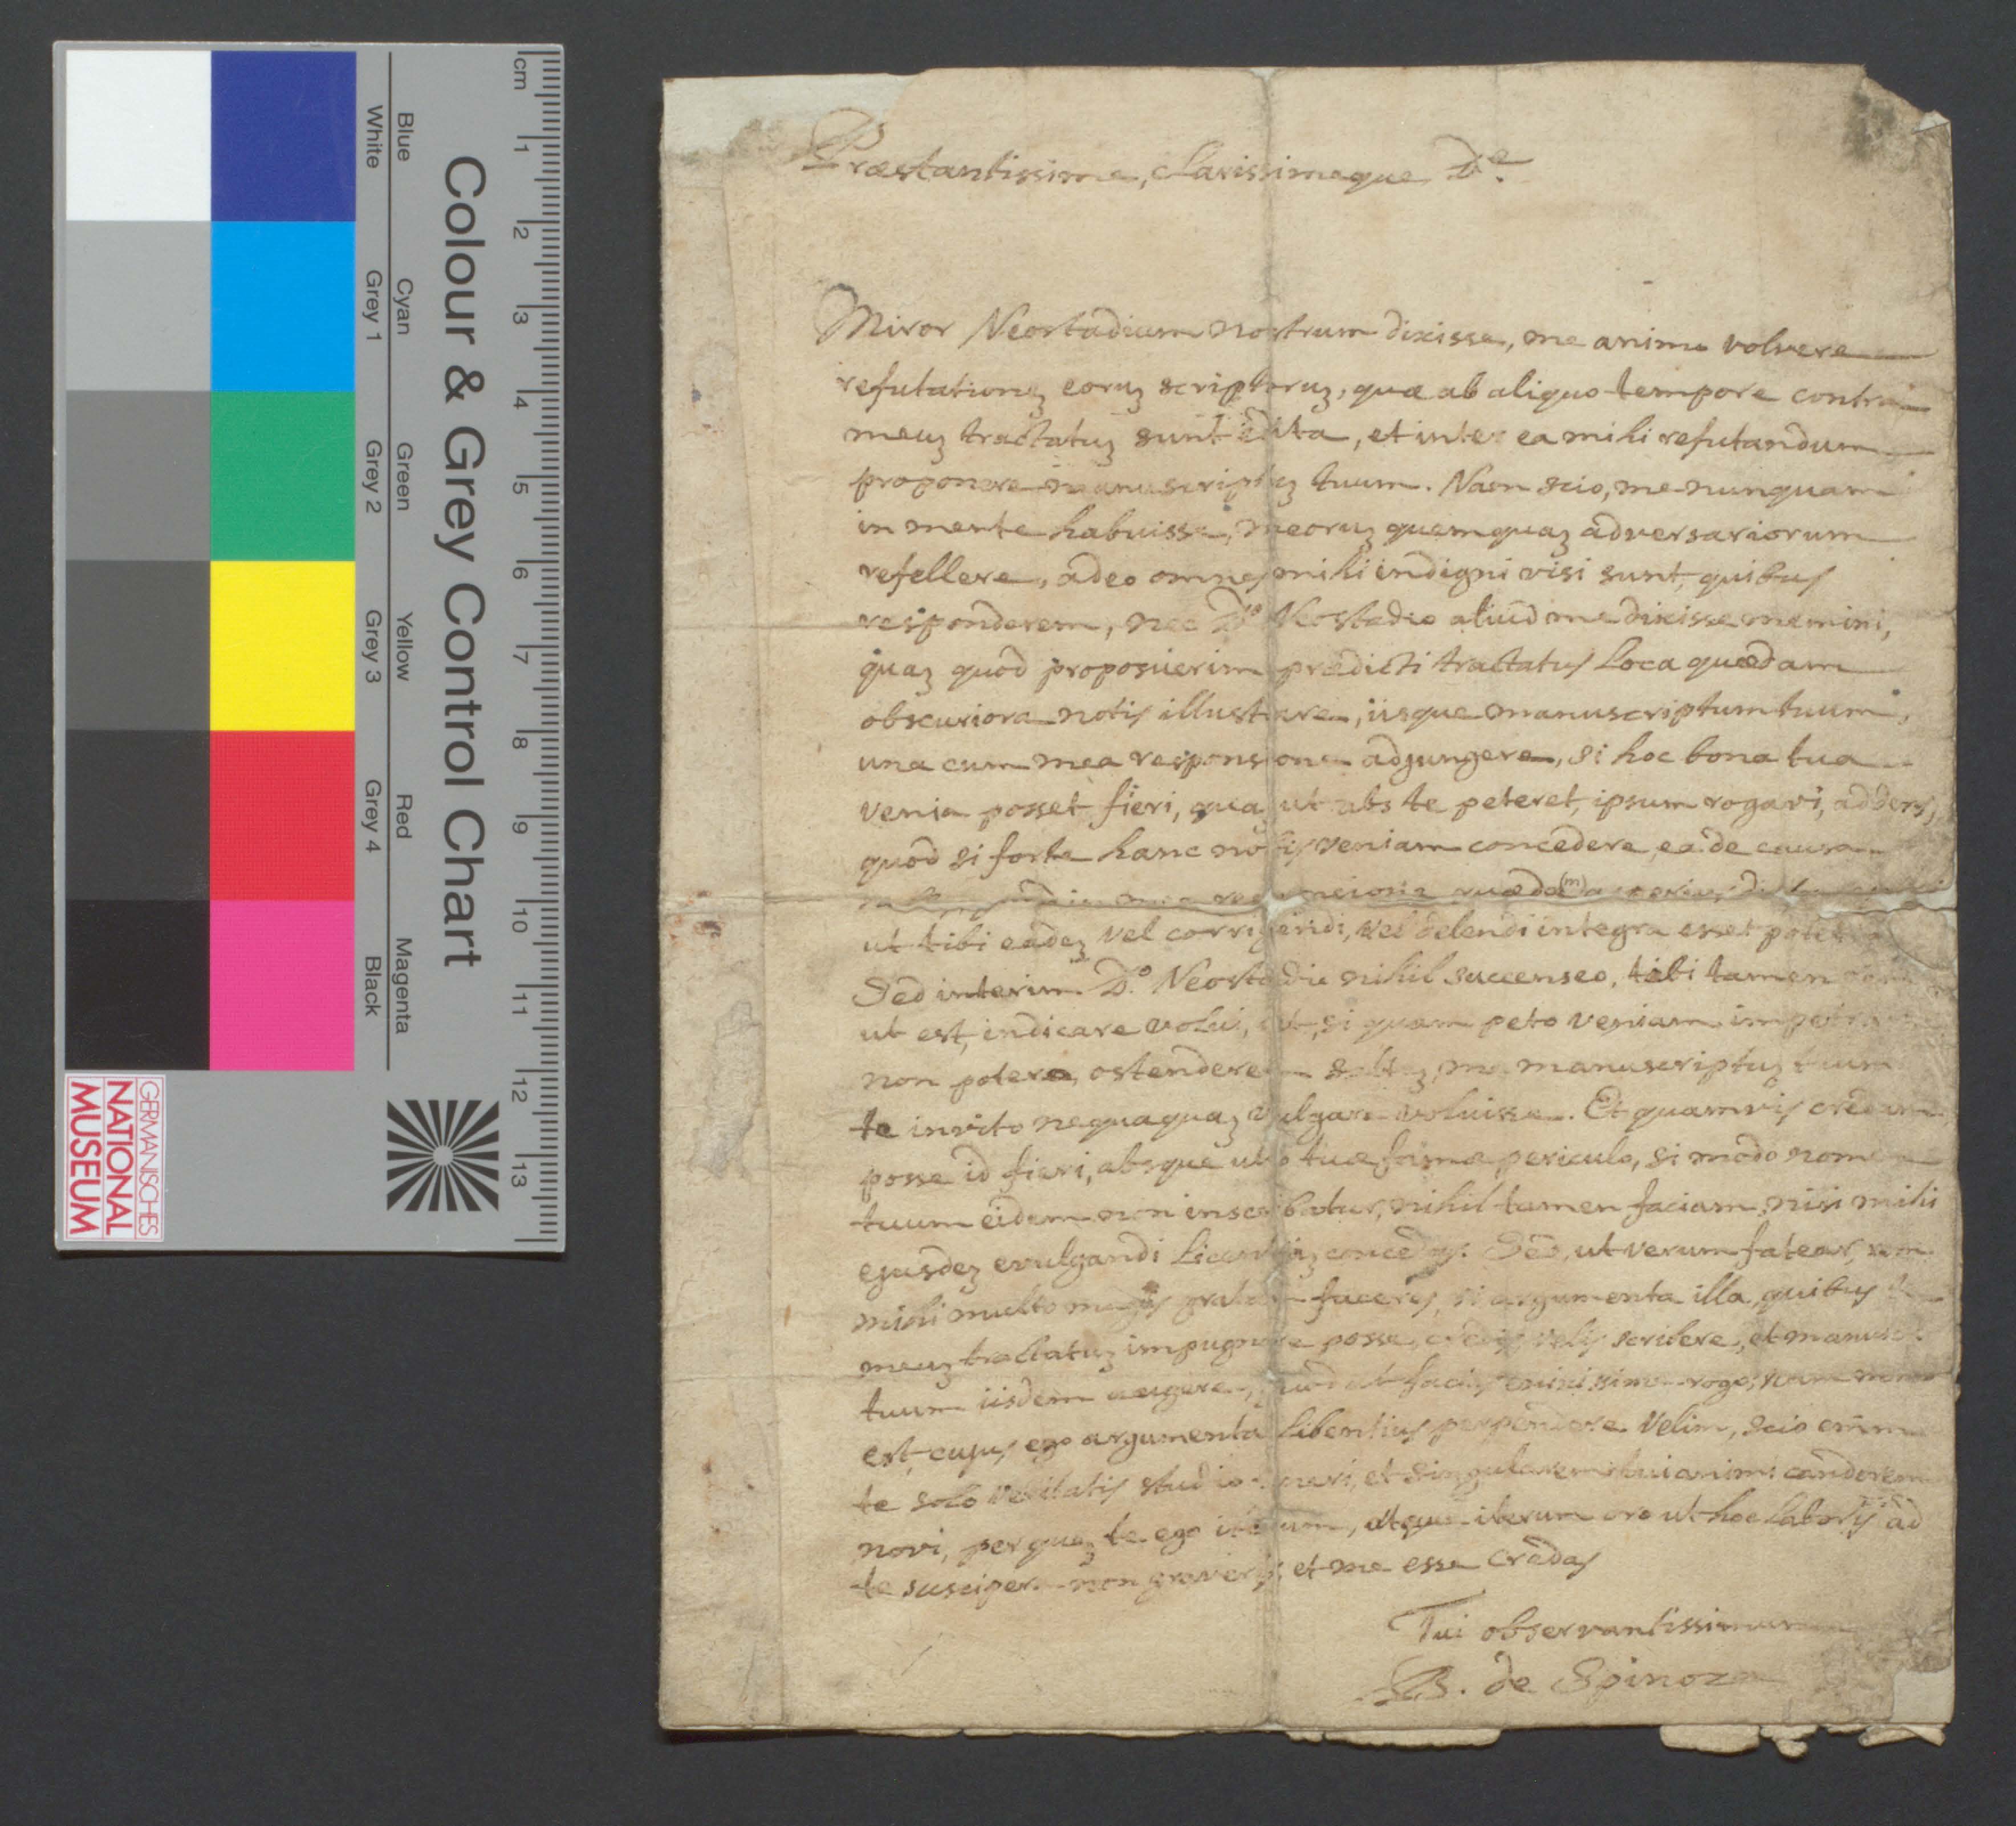 Colour & Grey Control Chart
Blue Cyan Green Yellow Red Magenta
White Grey 1 Grey 2 Grey 3 Grey 4 Black
cm 1 2 3 4 5 6 7 8 9 10 11 12 13
GERMANISCHES
NATIONAL
MUSEUM
Præstantissime, clarissimeque D.e
Miror Neostadium nostrum dixisse, me animo volvere
refutationeʒ eoruʒ scriptoruʒ, quæ ab aliquo tempore contra
meuʒ tractatuʒ sunt edita, et inter ea mihi refutandum
proponere manuscriptuʒ tuum. Nam scio, me nunquam
in mente habuisse, meoruʒ quemquaʒ adversariorum
refellere, adeo omnes mihi indigni visi sunt, quibus
responderem, nec D.o Neostadio aliud me dixisse memini,
quaʒ quod proposuerim prædicti tractatus loca quædam
obscuriora notis illustrare, iisque manuscriptum tuum,
una cum mea responsione adjungere, si hoc bona tua
venia posset fieri, quaʒ ut abs te peteret, ipsum rogavi, addens,
quod si forte hanc nobis veniam concedere ea de causa
quæda(m)
ut tibi eadeʒ vel corrigendi, vel delendi integra esset
Sed interim D.o Neostadio nihil succenseo, tibi tamen
ut est, indicare volui, ut, si quam peto veniam
non potero, ostenderem salteʒ, me manuscriptuʒ tuum
te invito nequaquaʒ vulgare voluisse. Et quamvis credam
posse id fieri, absque ullo tuæ famæ periculo, si modo nomen
tuum eidem non inscribatur, nihil tamen faciam, nisi mihi
ejusdeʒ evulgandi licentiaʒ concedas. Sed, ut verum fatear, rem
mihi multo magis gratam faceres, si argumenta illa, quibus
meuʒ tractatuʒ impugnare posse credis velis scribere, et manuscr.
tuum iisdem augere, quod ut facias enixissime rogo, nam nemo
est, cujus ego argumenta libentius perpendere velim, scio enim
te solo veritatis studio teneri, et singularem tui animi candorem
novi, per queʒ te ego iterum, atque iterum oro ut hoc laboris ad
te suscipere non graveris, et me esse credas
Tui observantissimum
B. de Spinoza